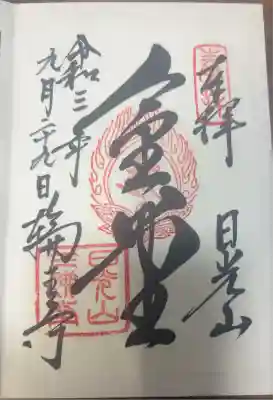 奉拝
日光山
金堂
令和三年
九月二十九日
輪王寺
日光山
三佛堂